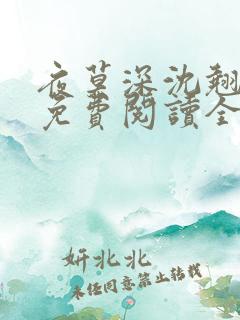 夜莫深沈翹
免費閱讀全
妍北北
未经同意禁止转载